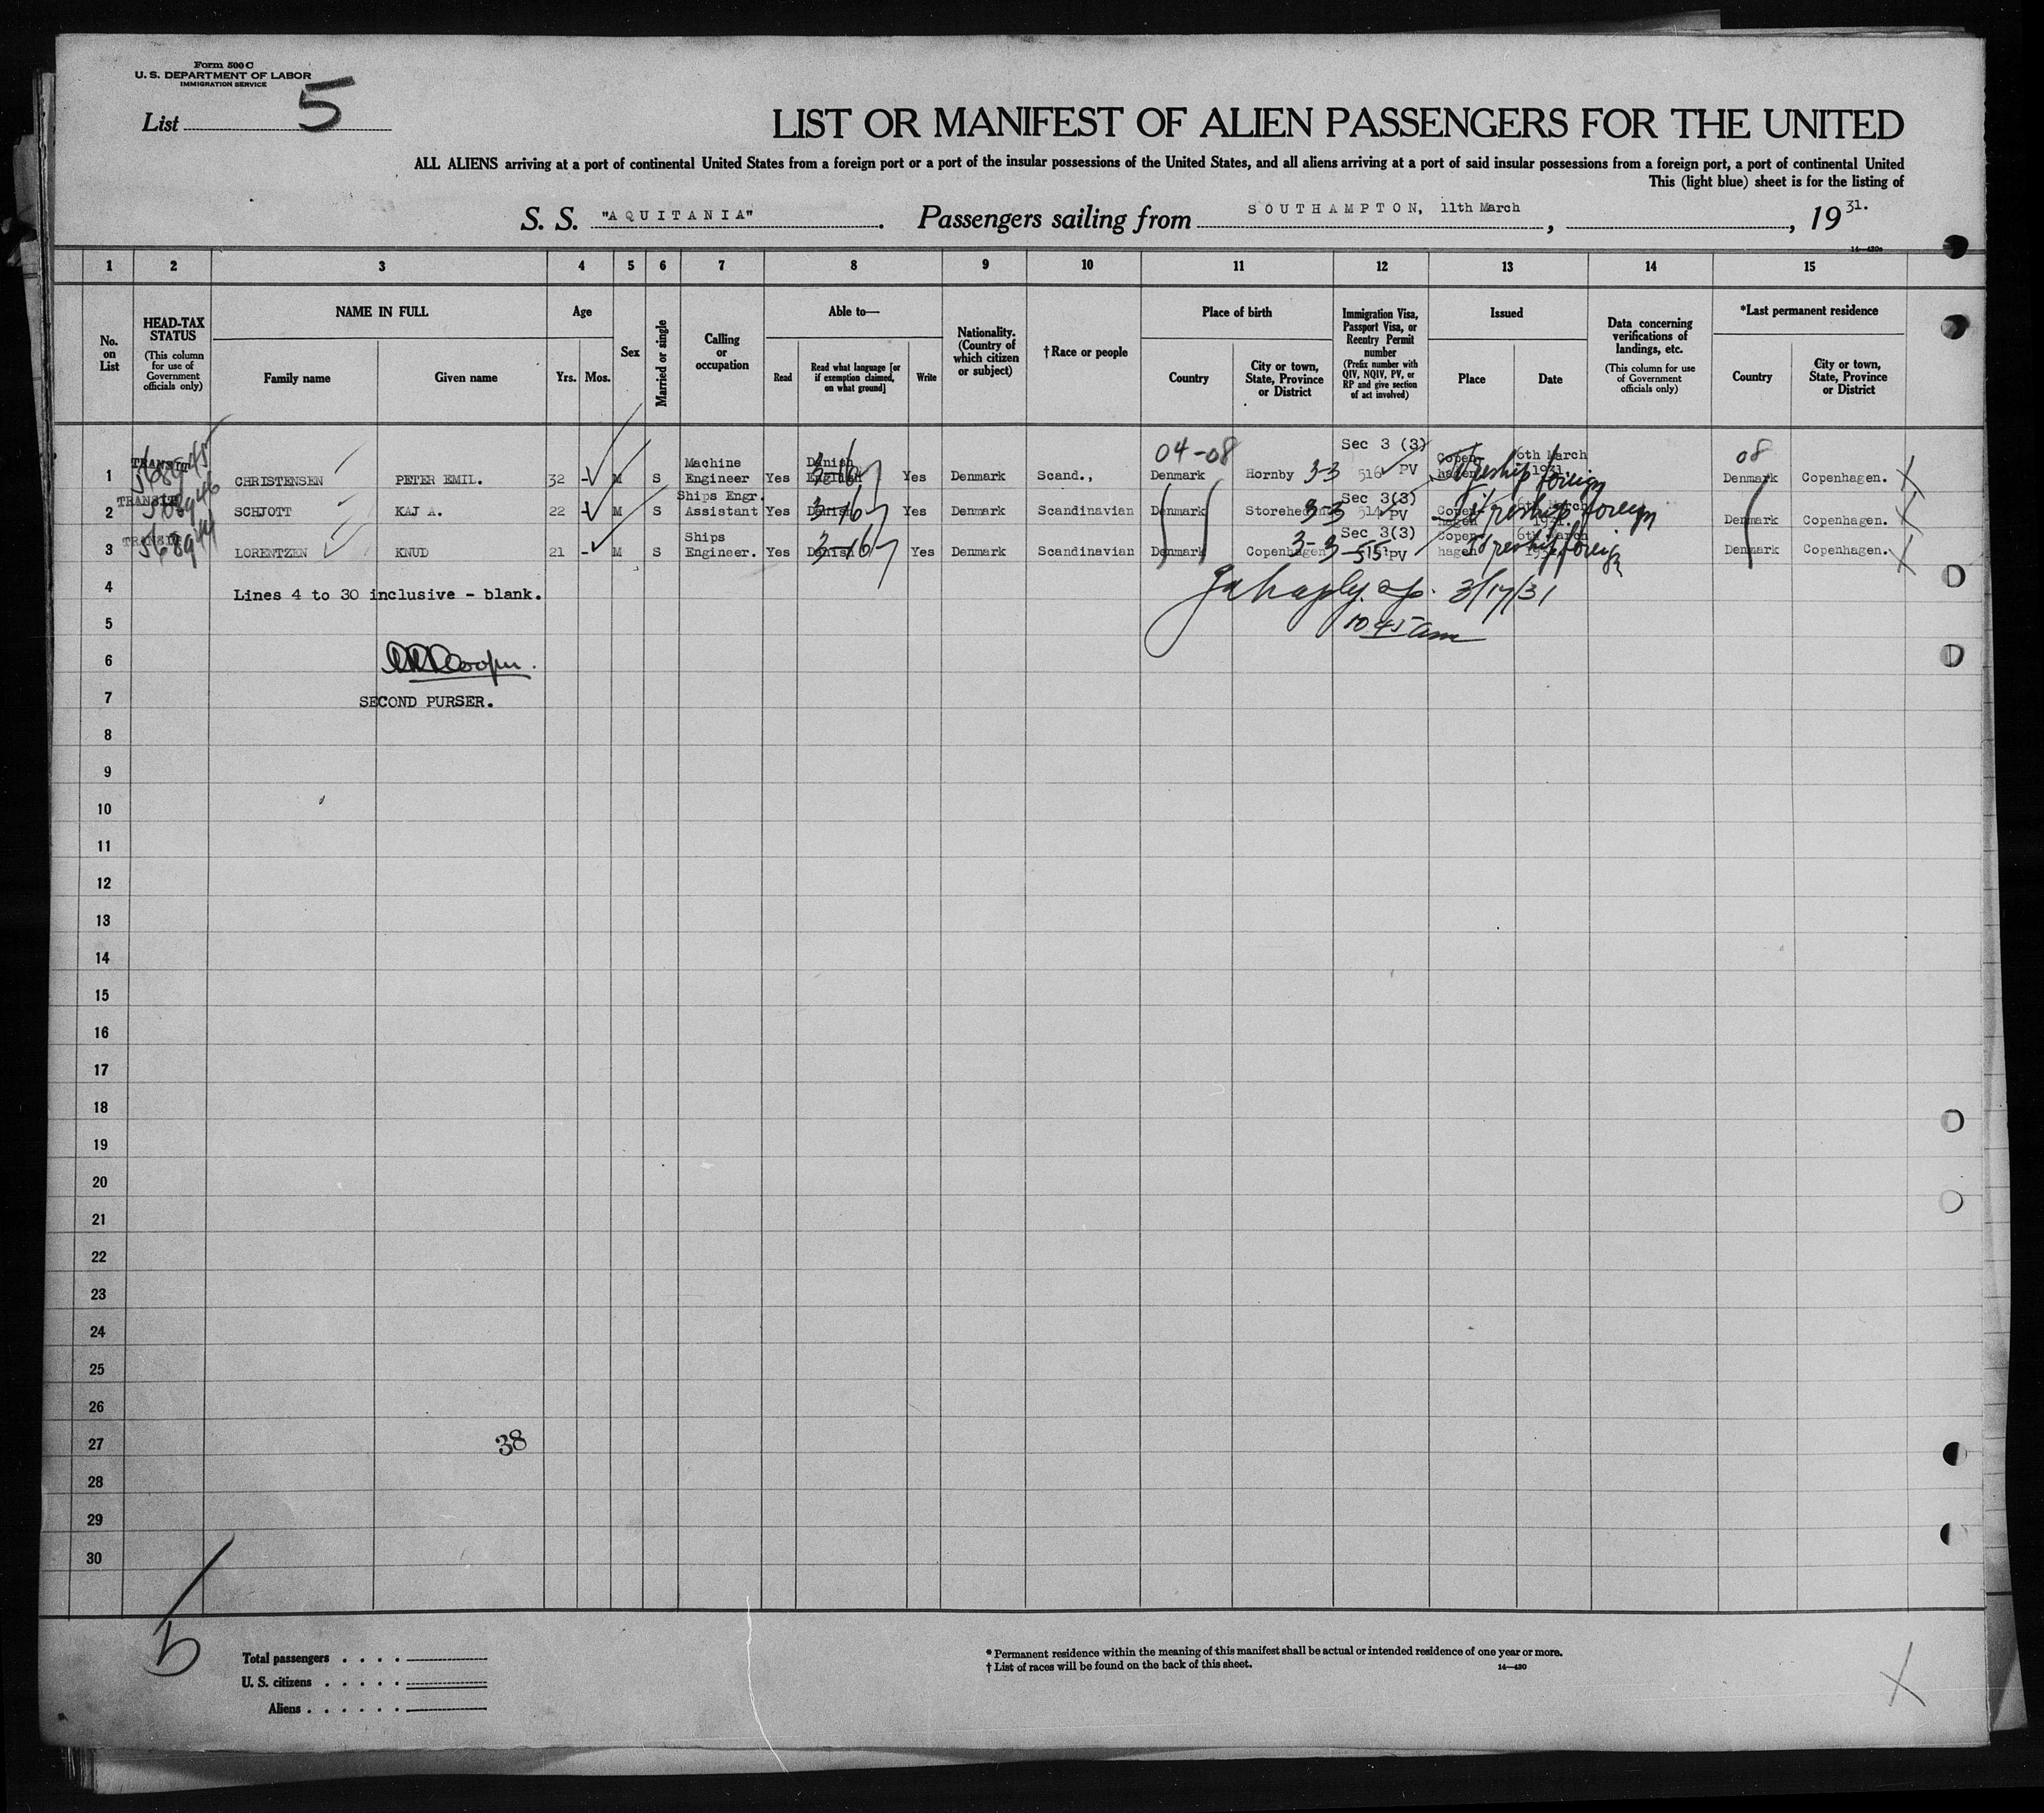 Form 500 C
U. S. DEPARTMENT OF LABOR
IMMIGRATION SERVICE
List 5
LIST OR MANIFEST OF ALIEN PASSENGERS FOR THE UNITED
ALL ALIENS arriving at a port of continental United States from a foreign port or a port of the insular possessions of the United States, and all aliens arriving at a port of said insular possessions from a foreign port, a port of continental United
This (light blue) sheet is for the listing of
S. S. "AQUITANIA". Passengers sailing from SOUTHAMPTON, 11th March, 1931.
14—430a
1 2 3 4 5 6 7 8 9 10 11 12 13 14 15
No. on List
HEAD-TAX STATUS (This column for use of Government officials only)
NAME IN FULL
Family name
Given name
Age
Yrs. Mos.
Sex
Married or single
Calling or occupation
Able to—
Read
Read what language [or if exemption claimed, on what ground]
Write
Nationality. (Country of which citizen or subject)
† Race or people
Place of birth
Country
City or town, State, Province or District
Immigration Visa, Passport Visa, or Reentry Permit number (Prefix number with QIV, NQIV, PV, or RP and give section of act involved)
Issued
Place
Date
Data concerning verifications of landings, etc. (This column for use of Government officials only)
*Last permanent residence
Country
City or town, State, Province or District
04-08 08
1 TRANSIT 568945 CHRISTENSEN PETER EMIL. 32 - M S Machine Engineer Yes Danish English 3-16 Yes Denmark Scand., Denmark Hornby 3-3 Sec 3 (3) 516 PV Copenhagen 6th March 1931 Treship foreign Denmark Copenhagen. X
2 TRANSIT 568946 SCHJOTT KAJ A. 22 - M S Ships Engr. Assistant Yes Danish 3-16 Yes Denmark Scandinavian Denmark 3-3 Sec 3(3) 514 PV Copenhagen 6th March 1931. Treship foreign Denmark Copenhagen. X
3 TRANSIT LORENTZEN KNUD 21 - M S Ships Engineer. Yes Danish 3-16 Yes Denmark Scandinavian Denmark Copenhagen 3-3 Sec 3(3) 515 PV Copenhagen 6th March 1931 Treship foreign Denmark Copenhagen. X
4 Lines 4 to 30 inclusive - blank. 3/17/31
5 10 45 am
6
7 SECOND PURSER.
8
9
10
11
12
13
14
15
16
17
18
19
20
21
22
23
24
25
26
27 38
28
29
30
Total passengers . . . .
U. S. citizens . . . . .
Aliens . . . . . .
* Permanent residence within the meaning of this manifest shall be actual or intended residence of one year or more.
† List of races will be found on the back of this sheet.
14—430
X